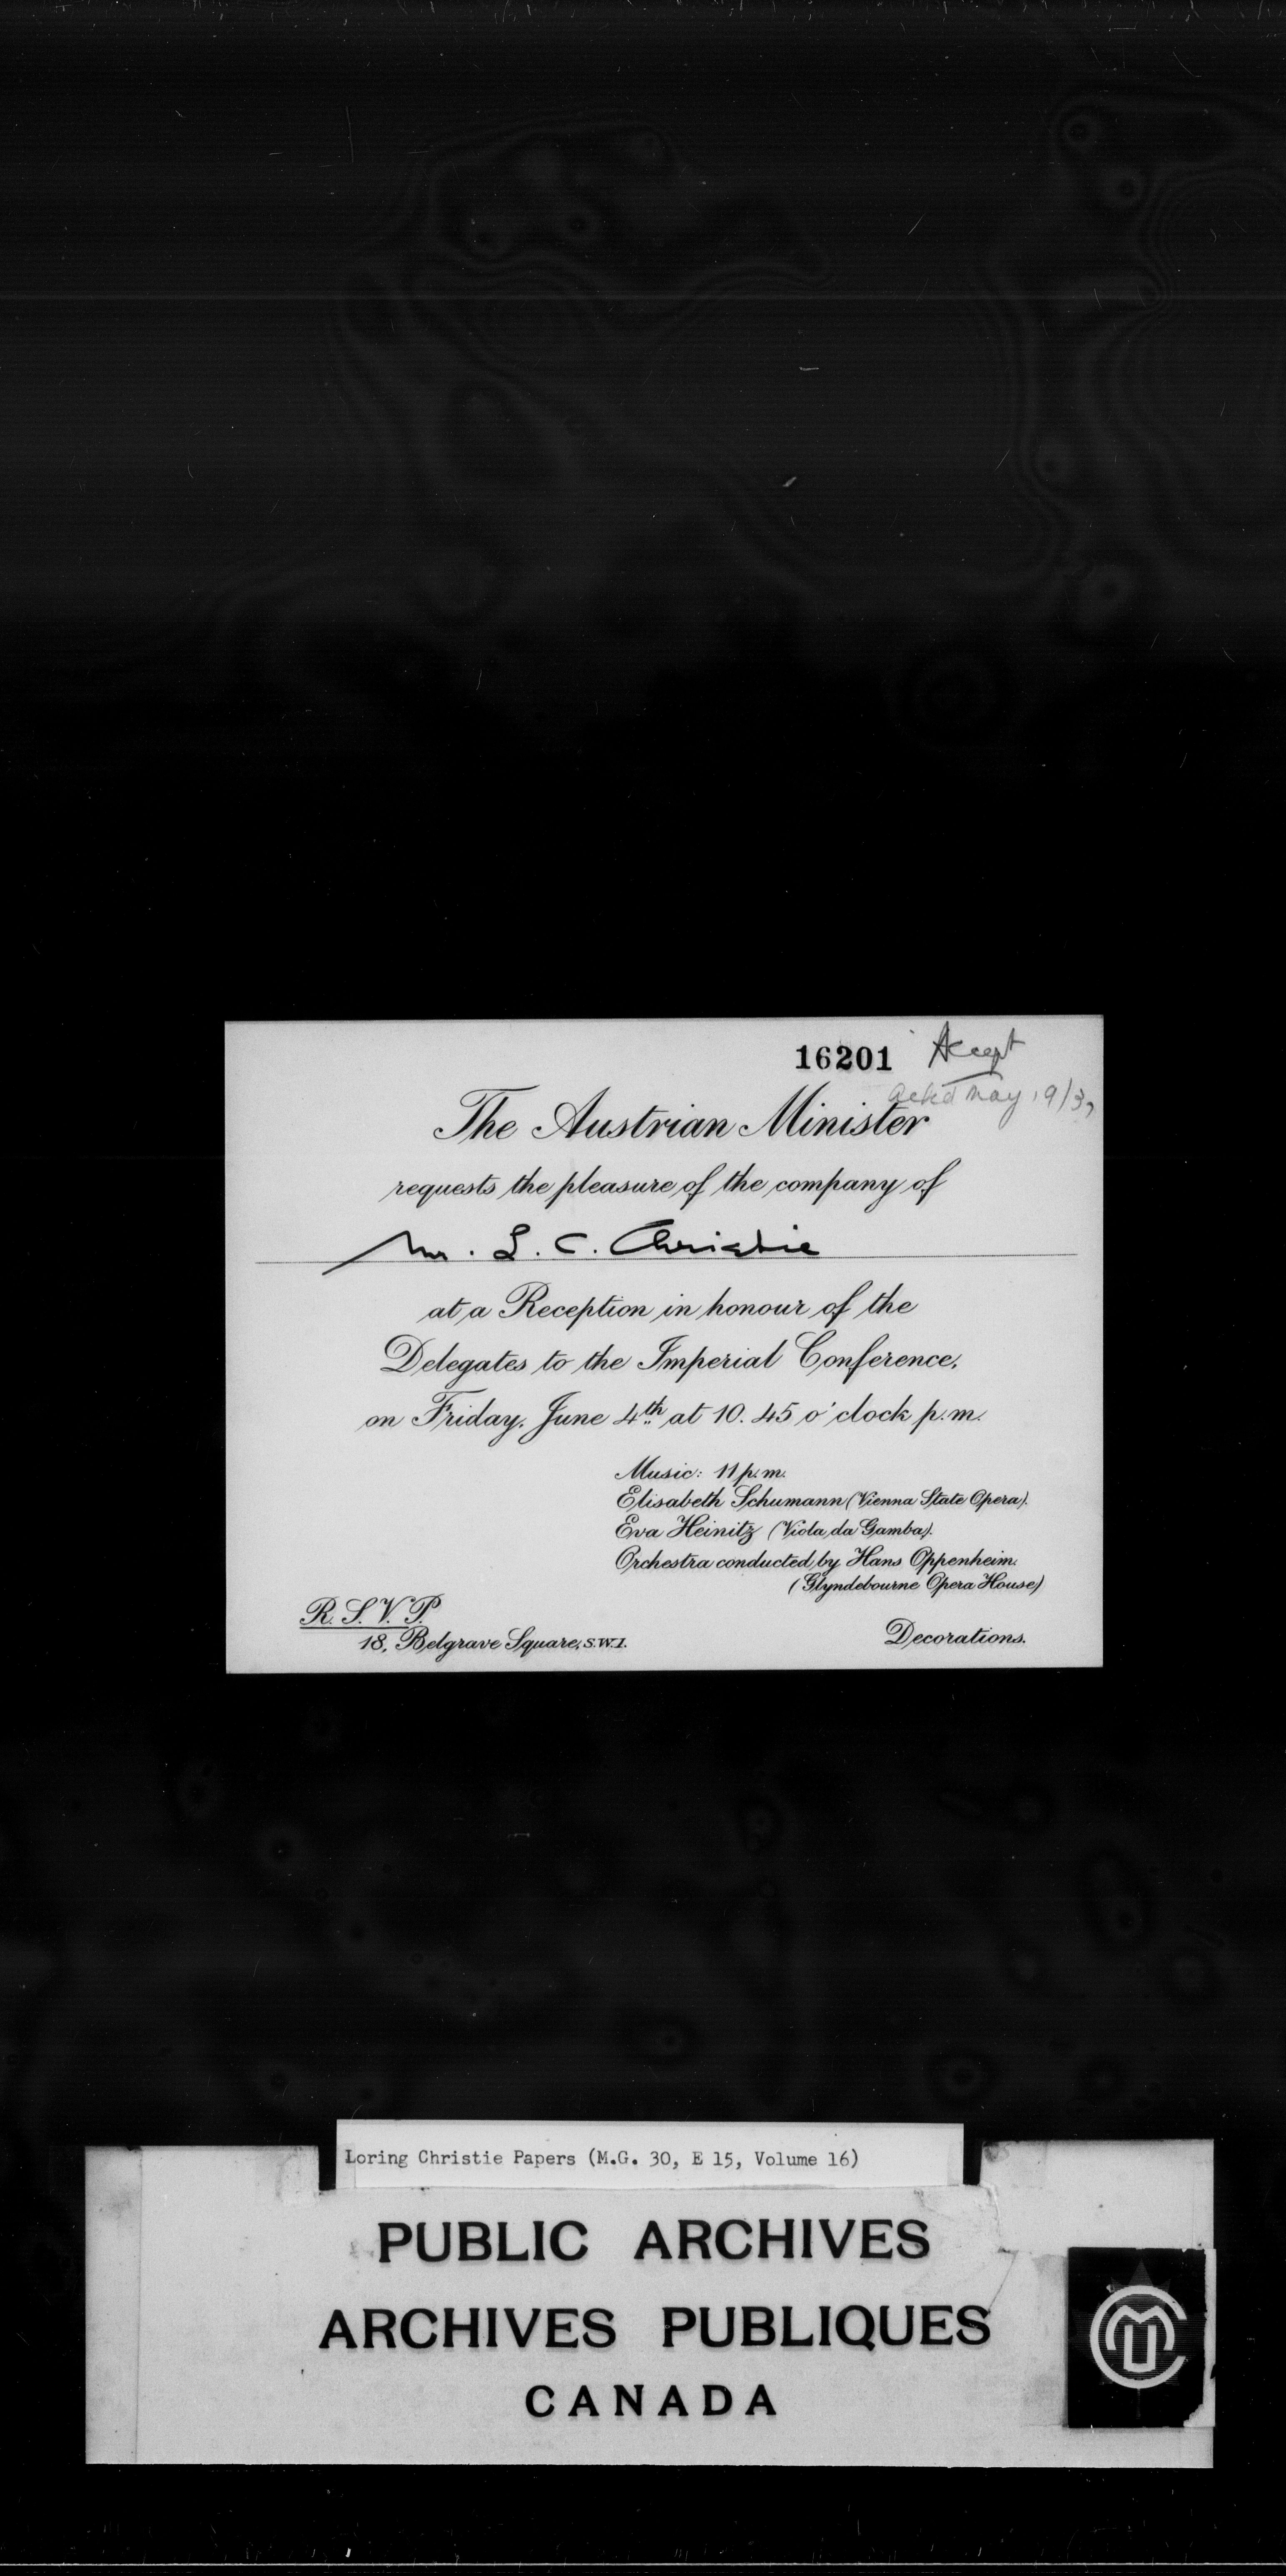 16201 Accept
ackd May 19/37
The Austrian Minister
requests the pleasure of the company of
Mr. L. C. Christie
at a Reception in honour of the
Delegates to the Imperial Conference,
on Friday, June 4th at 10.45 o'clock p.m.
Music: 11 p.m.
Elisabeth Schumann (Vienna State Opera).
Eva Heinitz (Viola da Gamba).
Orchestra conducted by Hans Oppenheim.
(Glyndebourne Opera House)
R. S. V. P.
18, Belgrave Square, S.W.1.
Decorations.
Loring Christie Papers (M.G. 30, E 15, Volume 16)
PUBLIC ARCHIVES
ARCHIVES PUBLIQUES
CANADA